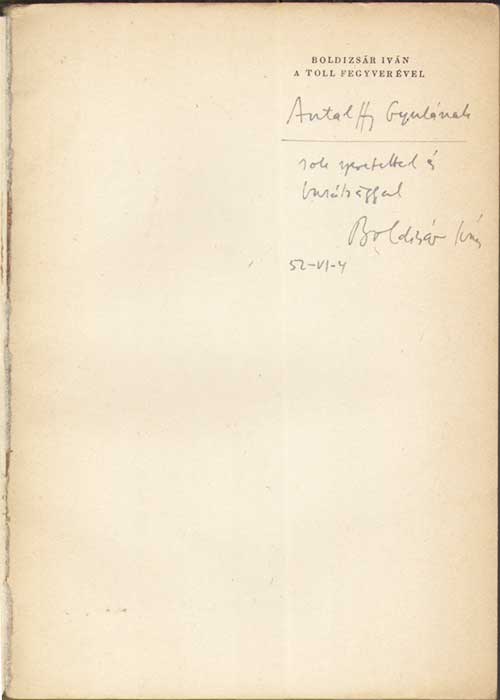 BOLDIZSÁR IVÁN
A TOLL FEGYVERÉVEL
Antalffy Gyulának
sok szeretettel és
barátsággal
Boldizsár Iván
52-VI-4